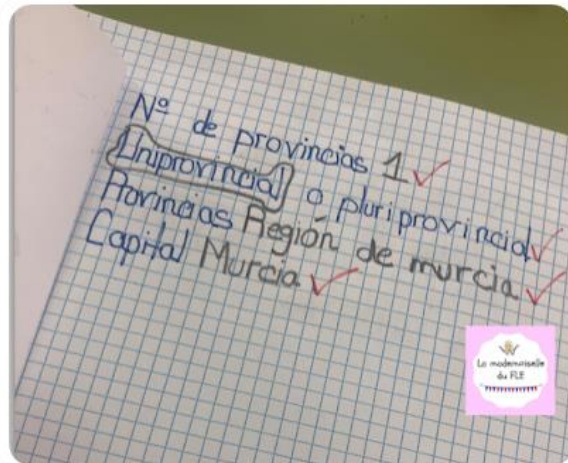 Nº de provincias 1
Uniprovincial o pluriprovincial
Provincias Región de murcia
Capital Murcia
La mademoiselle
du FLE